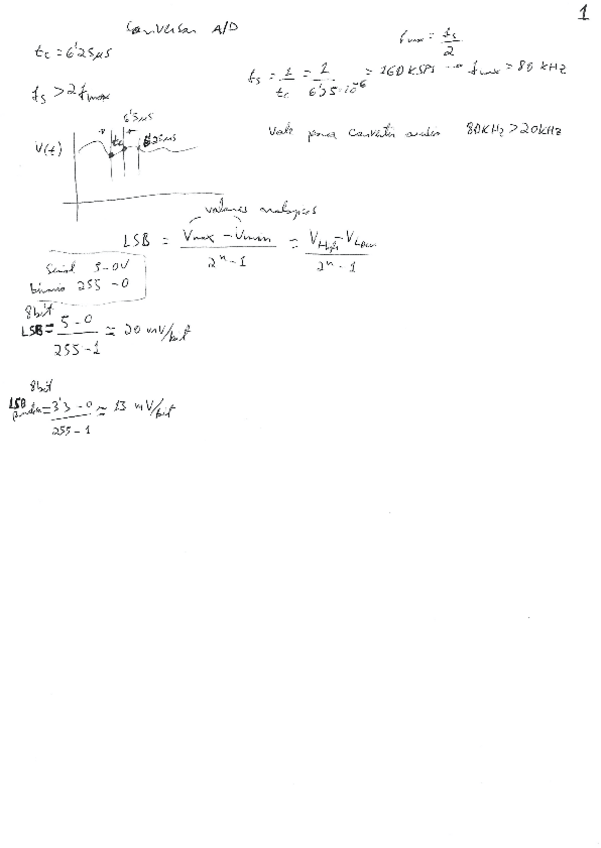 1
Conversor A/D
tc = 6'25µs
fs > 2fmax
fmax = fs/2
fs = 1/tc = 1/6'25·10^-6 = 160 KSPS → fmax = 80 KHz
Vale para convertir audio 80KHz > 20kHz
6'25µs
V(t) tc 6'25µs
valores analogicos
LSB = Vmax - Vmin / 2^n - 1 = VHigh - VLow / 2^n - 1
Señal 5-0V
binario 255-0
8bit
LSB = 5-0 / 255-1 ≈ 20 mV/bit
8bit
LSB = 3'3-0 / 255-1 ≈ 13 mV/bit